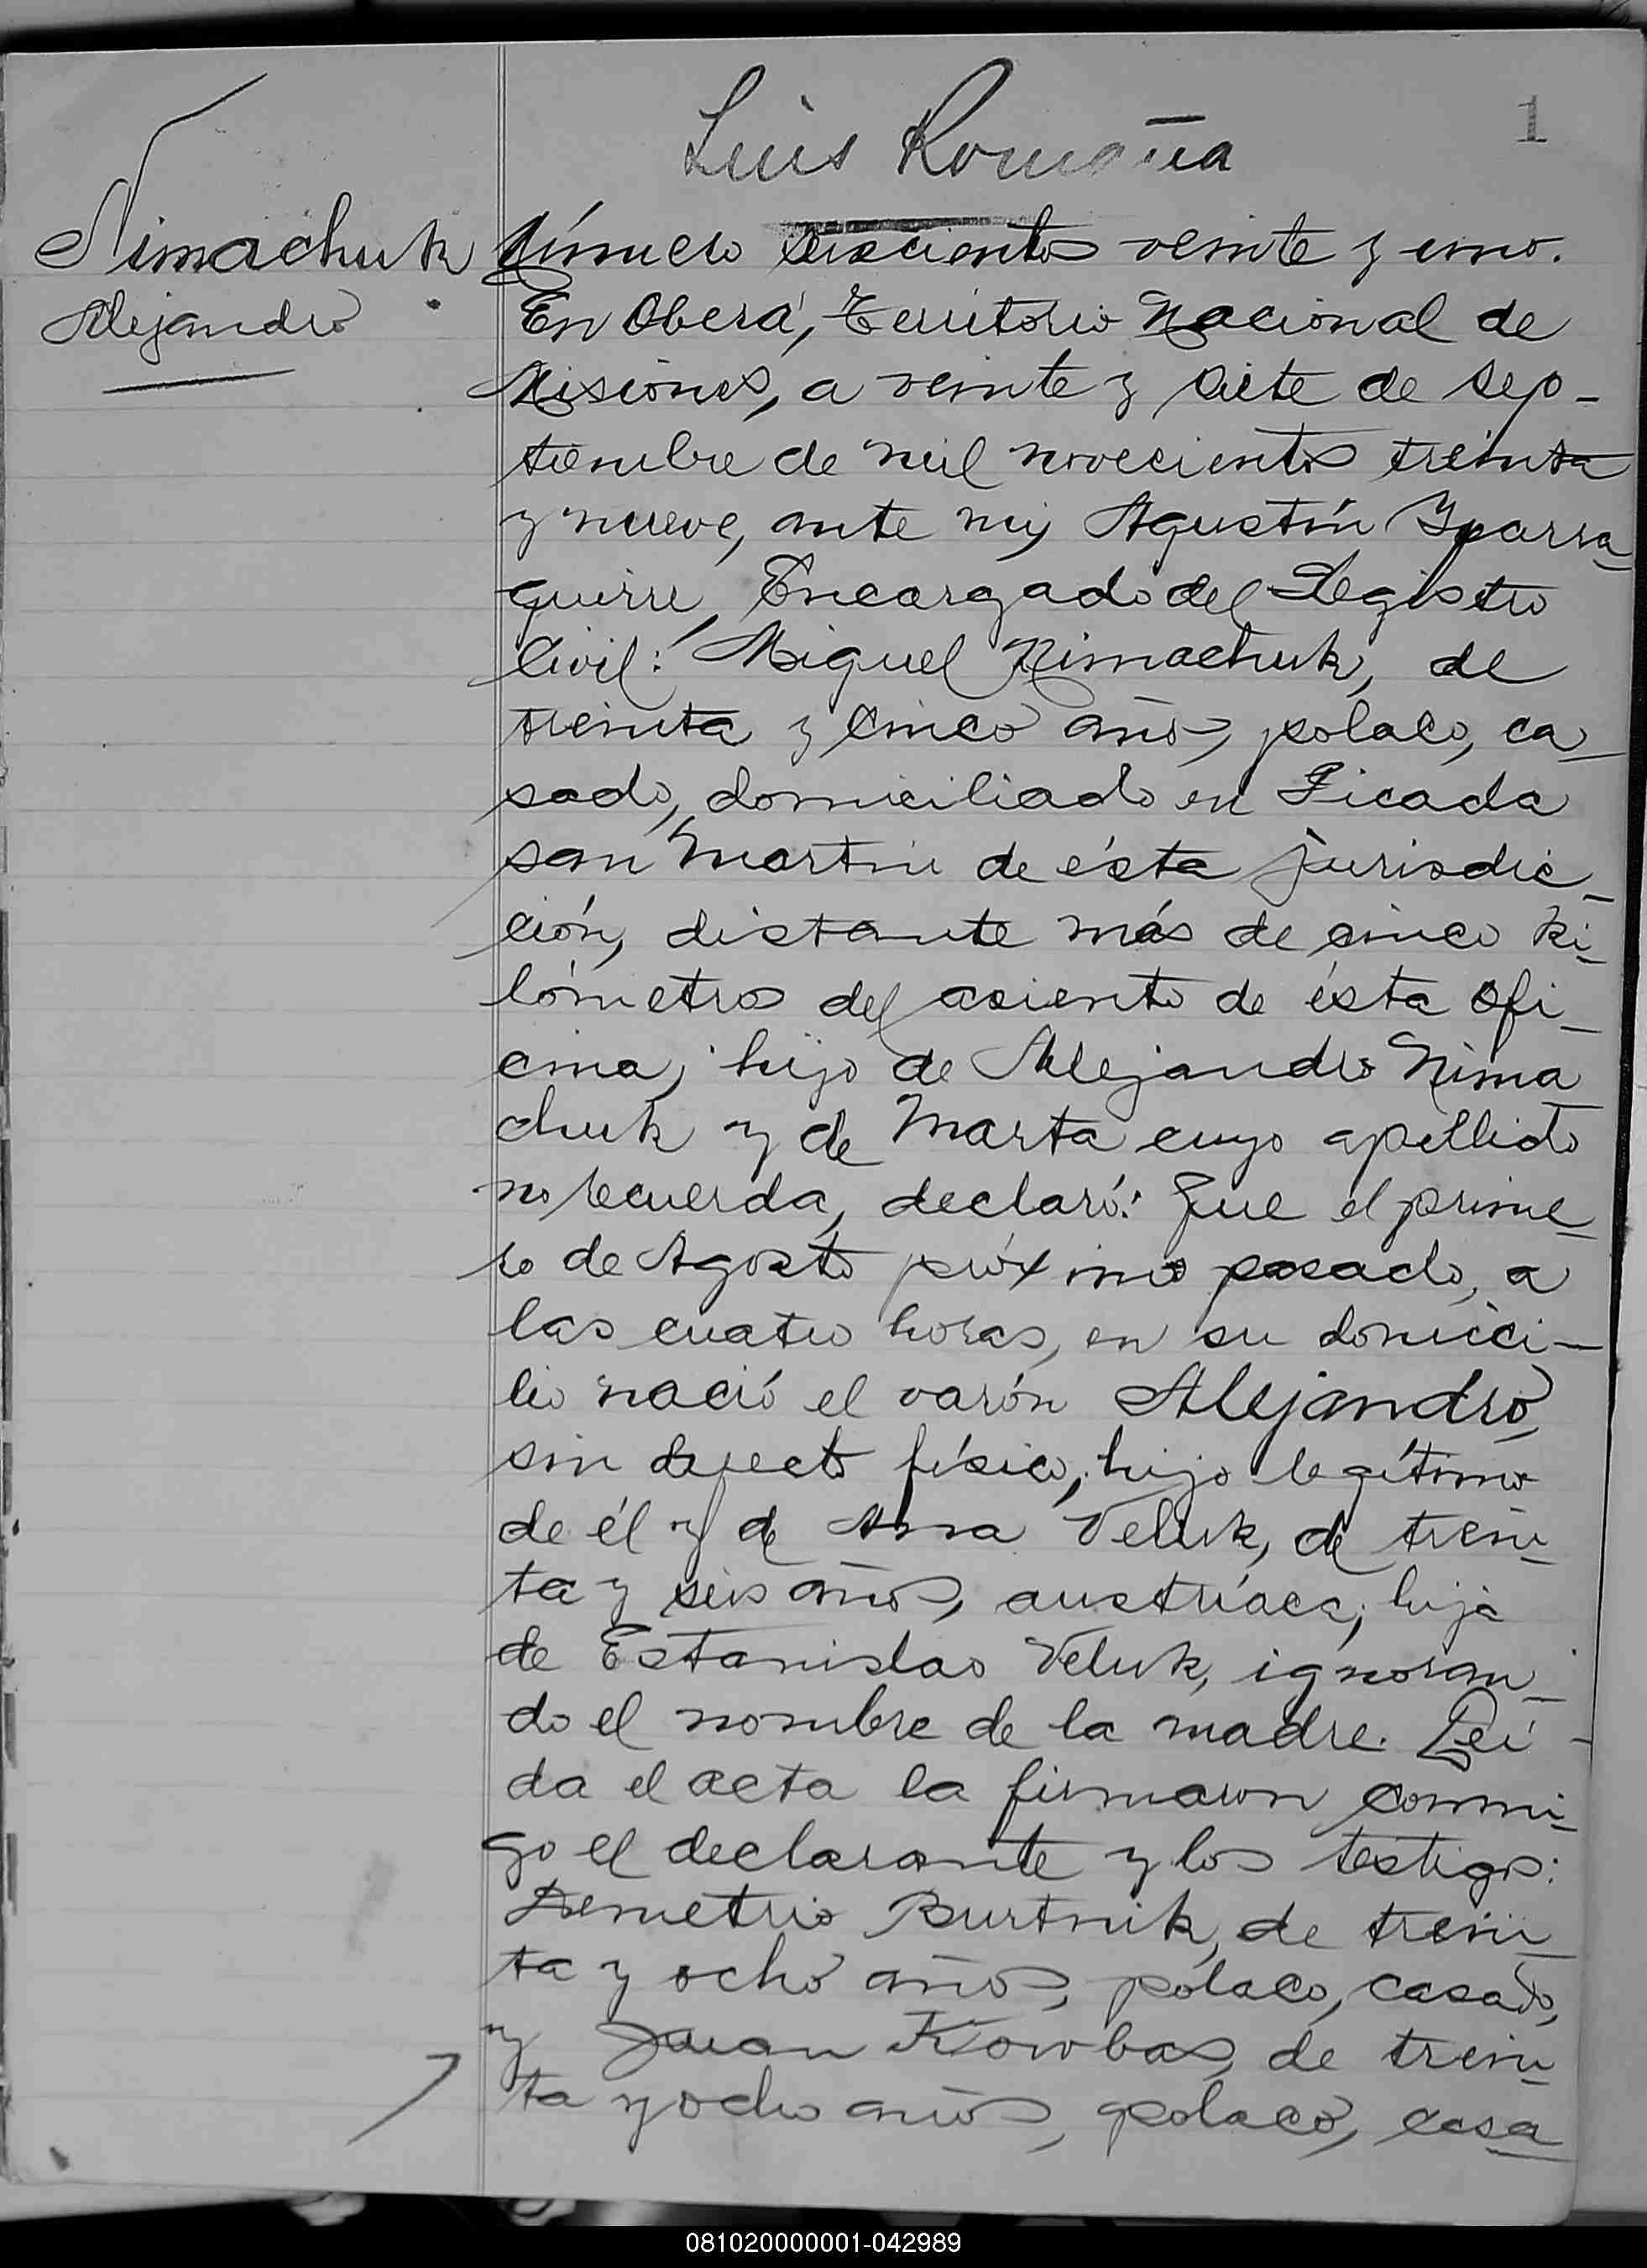 1
Luis Romaña
Nimachuk
Alejandro
Número seiscientos veinte y uno.
En Oberá, Territorio Nacional de
Misiones, a veinte y siete de sep-
tiembre de mil novecientos treinta
y nueve, ante mí, Agustín Yparra-
guirre, Encargado del Registro
Civil: Miguel Nimachuk, de
treinta y cinco años, polaco, ca-
sado, domiciliado en Picada
San Martín de ésta jurisdic-
ción, distante más de cinco ki-
lómetros del asiento de ésta ofi-
cina, hijo de Alejandro Nima-
chuk y de Marta cuyo apellido
no recuerda, declaró: Que el prime-
ro de Agosto próximo pasado, a
las cuatro horas, en su domici-
lio nació el varón Alejandro,
sin defecto físico, hijo legítimo
de él y de Ana Veluk, de trein-
ta y seis años, austríaca; hija
de Estanislao Veluk, ignoran-
do el nombre de la madre. Leí-
da el acta la firmaron conmi-
go el declarante y los testigos:
Demetrio Burtnik, de trein-
ta y ocho años, polaco, casado,
y Juan Kowbas, de trein-
ta y ocho años, polaco, casa-
081020000001-042989